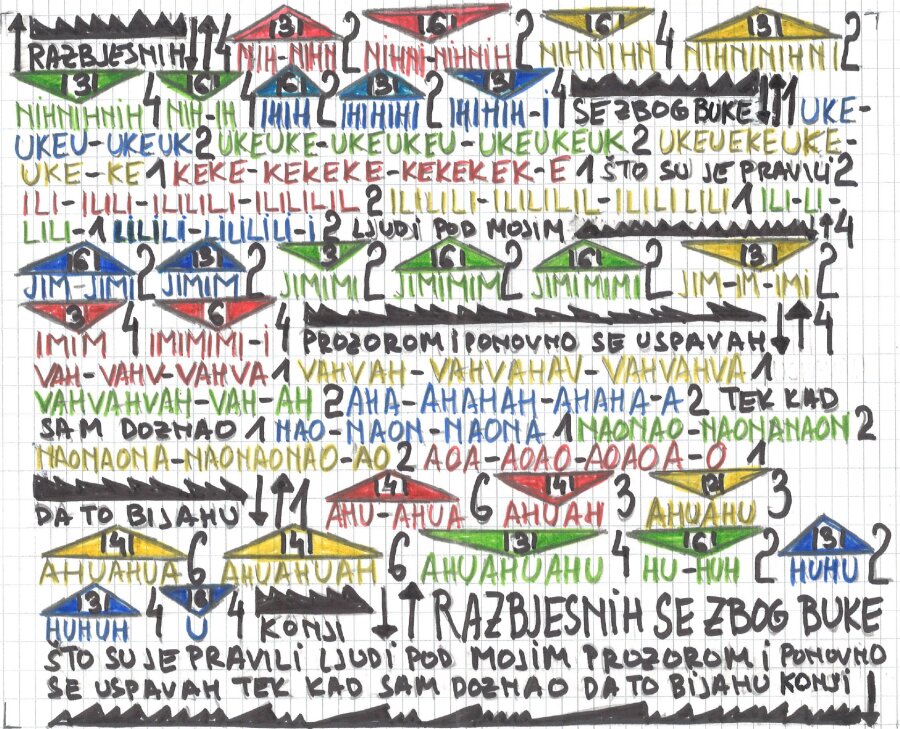 3 6 6 3
RAZBJESNIH 4 NIH-NIHN 2 NIHNI-NIHNIH 2 NIHNIHN 4 NIHNIHNIHNI 2
3 6 6 3 3
NIHNIHNIH 4 NIH-IH 4 IHIH 2 IHIHIHI 2 IHIHIH-I 4 SE ZBOG BUKE 1 UKE-
UKEU-UKEUK 2 UKEUKE-UKEUKEU-UKEUKEUK 2 UKEUEKEUKE-
UKE-KE 1 KEKE-KEKEKE-KEKEKEK-E 1 ŠTO SU JE PRAVILI 2
ILI-ILILI-ILILILI-ILILILIL 2 ILILILI-ILILILIL-ILILILILI 1 ILI-LI-
LILI-1 LILILI-LILILILI-i 2 LJUDI POD MOJIM 4
6 3 3 6 6 3
JIM-JIMI 2 JIMIM 2 JIMIMI 2 JIMIMIM 2 JIMIMIMI 2 JIM-IM-IMI 2
3 6
IMIM 4 IMIMIMI-i 4 PROZOROM i PONOVNO SE USPAVAH 4
VAH-VAHV-VAHVA 1 VAHVAH-VAHVAHAV-VAHVAHVA 1
VAHVAHVAH-VAH-AH 2 AHA-AHAHAH-AHAHA-A 2 TEK KAD
SAM DOZNAO 1 NAO-NAON-NAONA 1 NAONAO-NAONANAON 2
NAONAONA-NAONAONAO-AO 2 AOA-AOAO-AOAOA-O 1
4 4
DA TO BIJAHU 1 AHU-AHUA 6 AHUAH 3 AHUAHU 3
4 4 3 6 3
AHUAHUA 6 AHUAHUAH 6 AHUAHUAHU 4 HU-HUH 2 HUHU 2
3
HUHUH 4 U 4 KONJI RAZBJESNIH SE ZBOG BUKE
ŠTO SU JE PRAVILI LJUDI POD MOJIM PROZOROM i PONOVNO
SE USPAVAH TEK KAD SAM DOZNAO DA TO BIJAHU KONJI